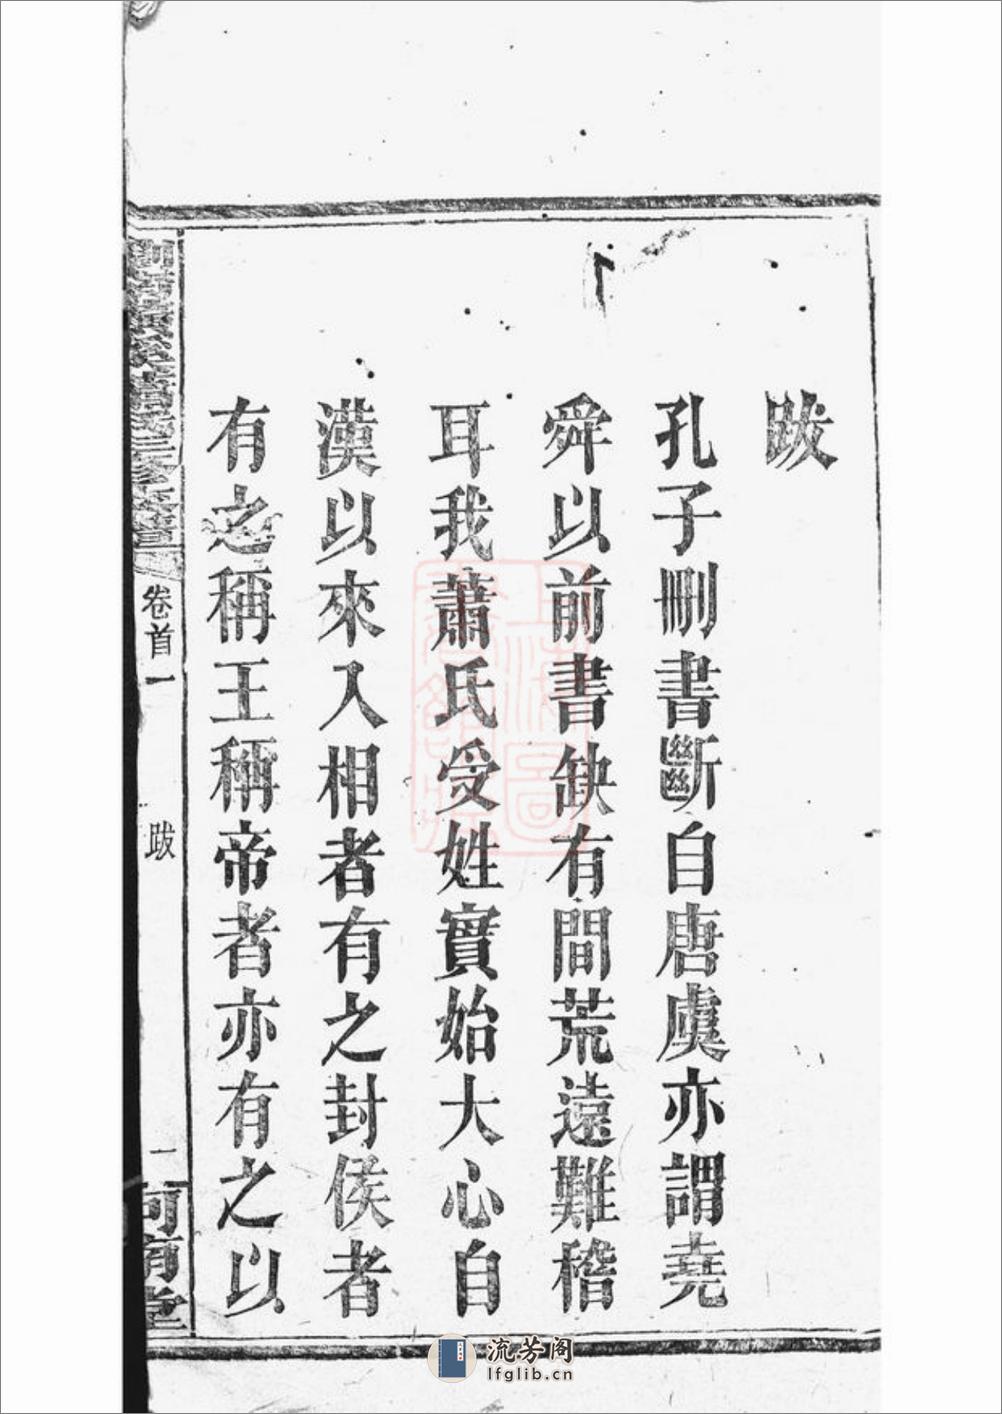 跋
孔子刪書斷自唐虞亦謂堯
舜以前書缺有間荒遠難稽
耳我蕭氏受姓實始大心自
漢以來入相者有之封侯者
有之稱王稱帝者亦有之以
卷首一
跋
一
上海圖
書館藏
流芳阁
lfglib.cn